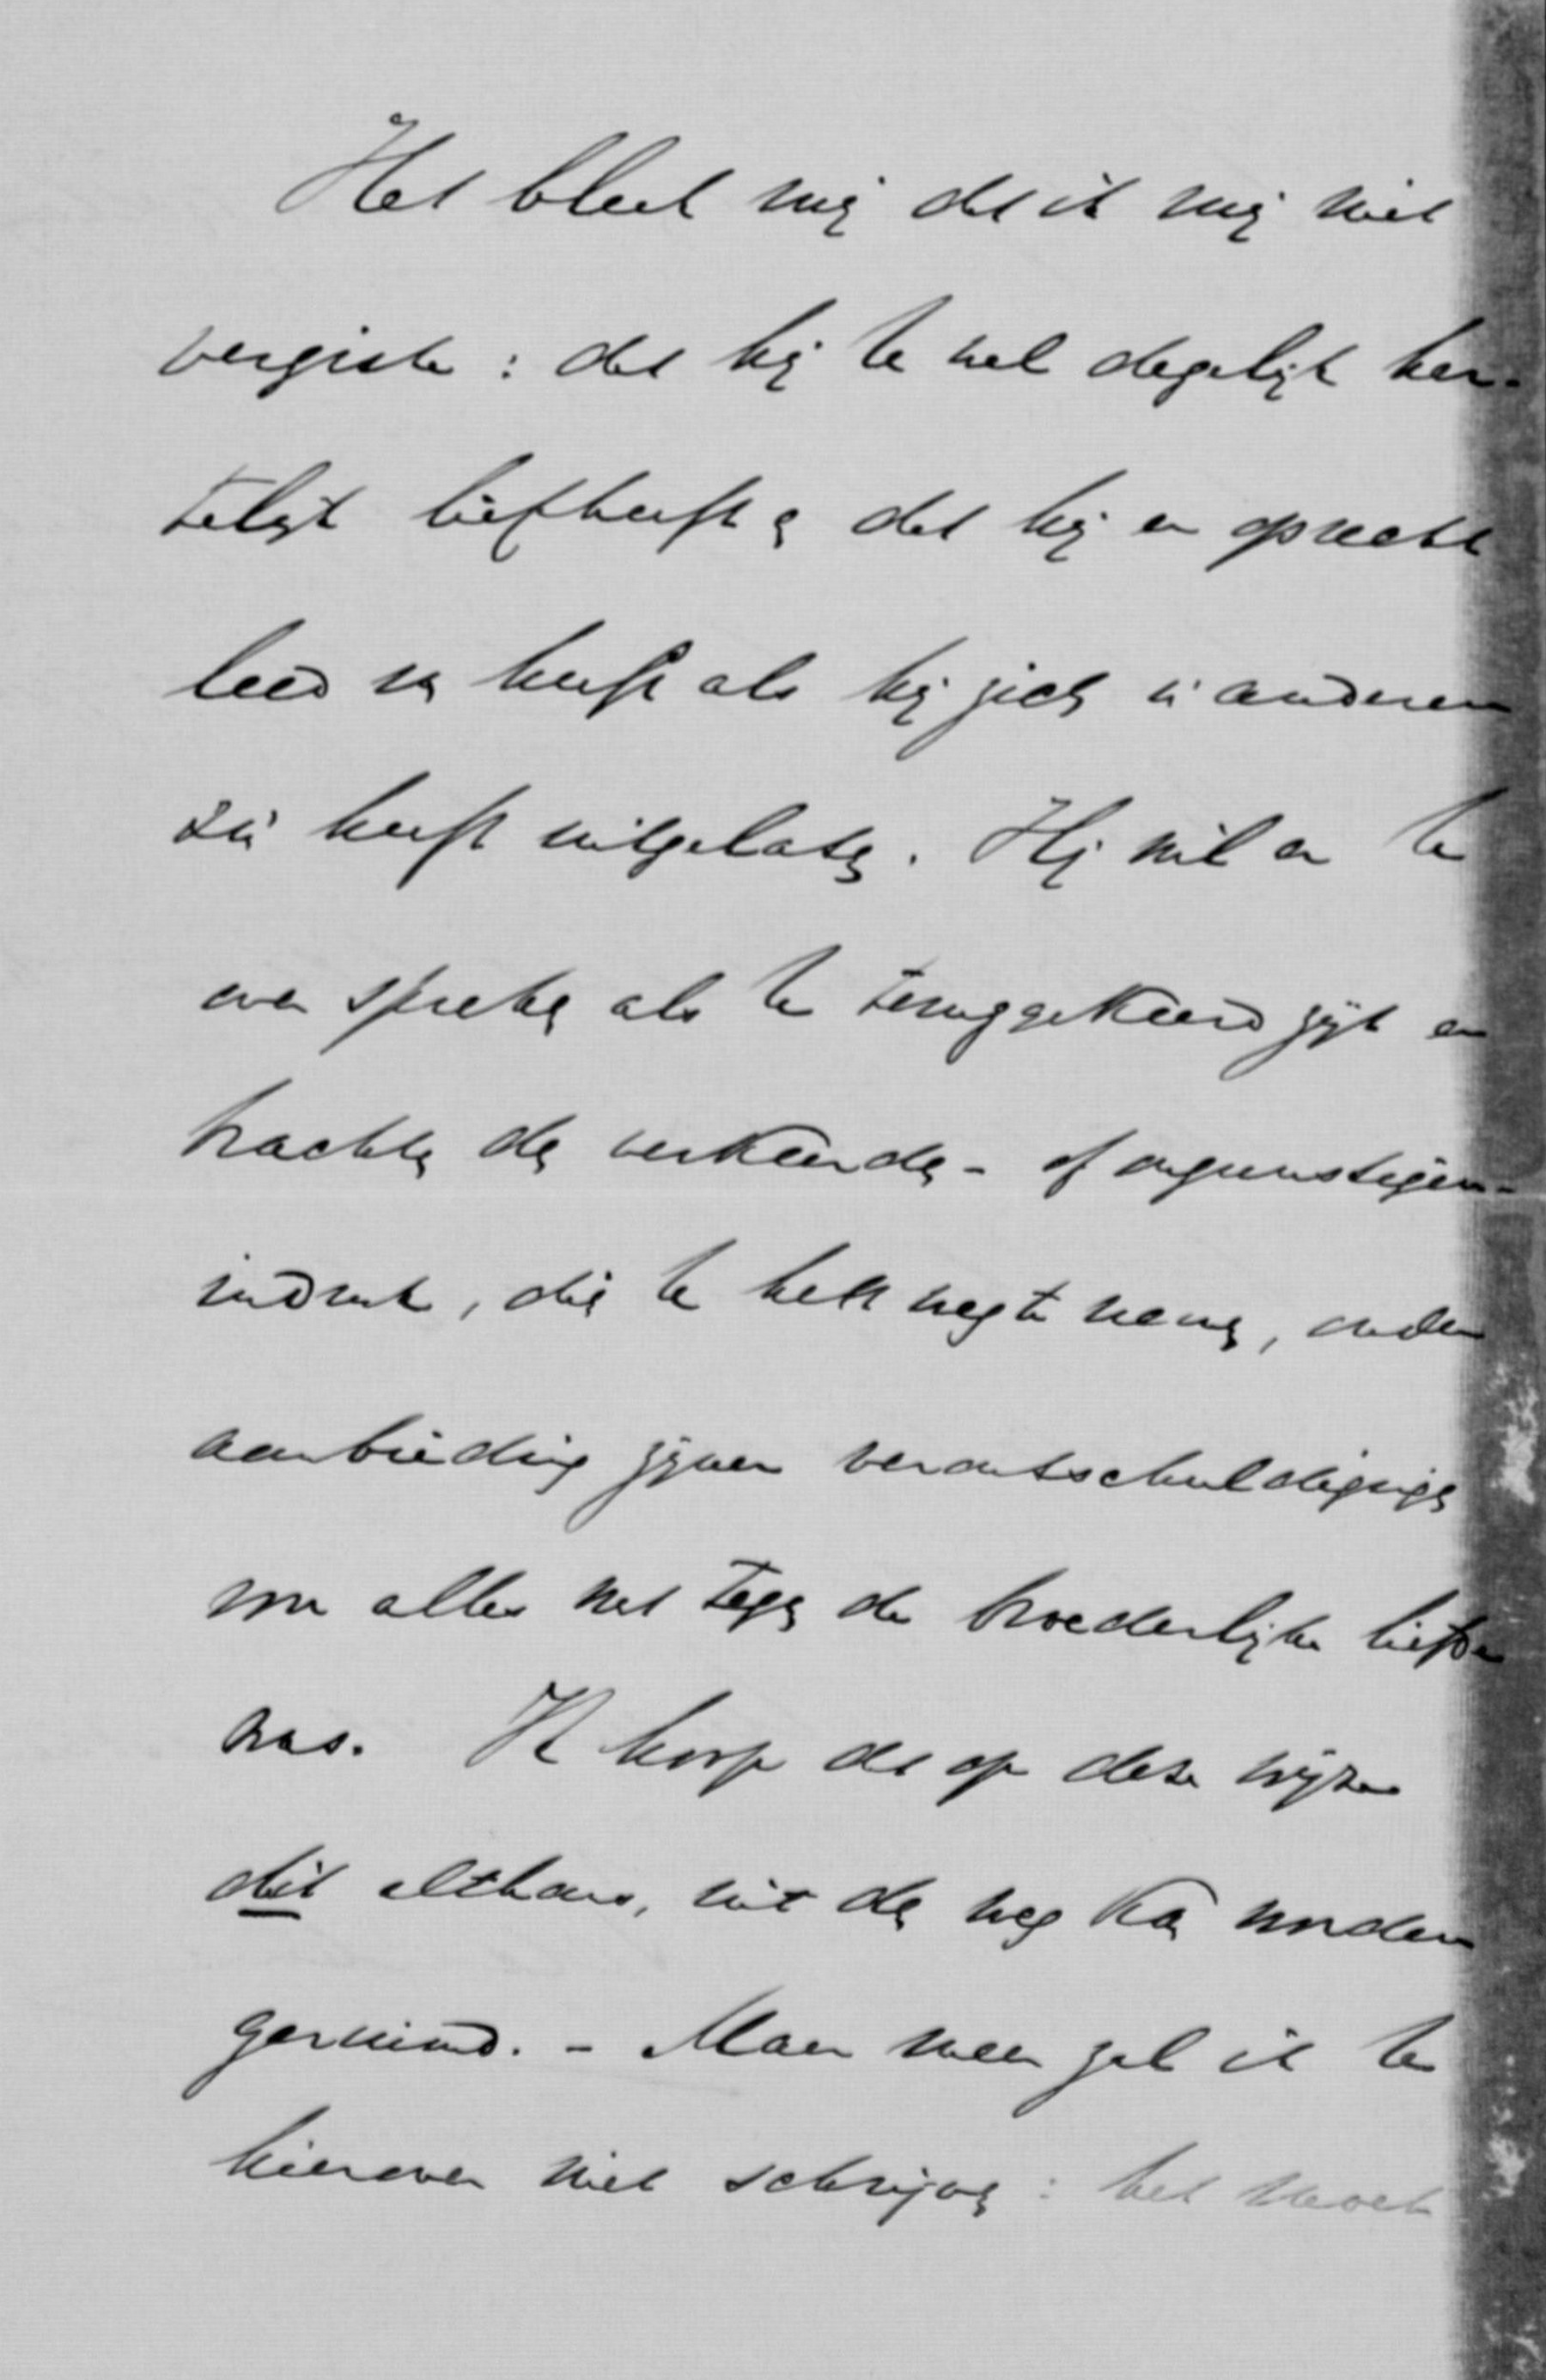 Het bleek mij dat ik mij niet
vergiste: dat hij Je wel degelijk har-
telijk liefheeft en dat hij er oprecht
leed van heeft als hij zich in anderen
zin heeft uitgelaten. Hij wil er Je
over spreken als Je teruggekeerd zijt en
trachten den verkeerden - of ongunstigen -
indruk, dien Je hebt weg te nemen, onder
aanbieding zijner verontschuldigingen
voor alles wat tegen de broederlijke liefde
was. Ik hoop dat op deze wijze
dit althans, uit den weg kan worden
geruimd. - Maar meer zal ik Je
hierover niet schrijven: het moet